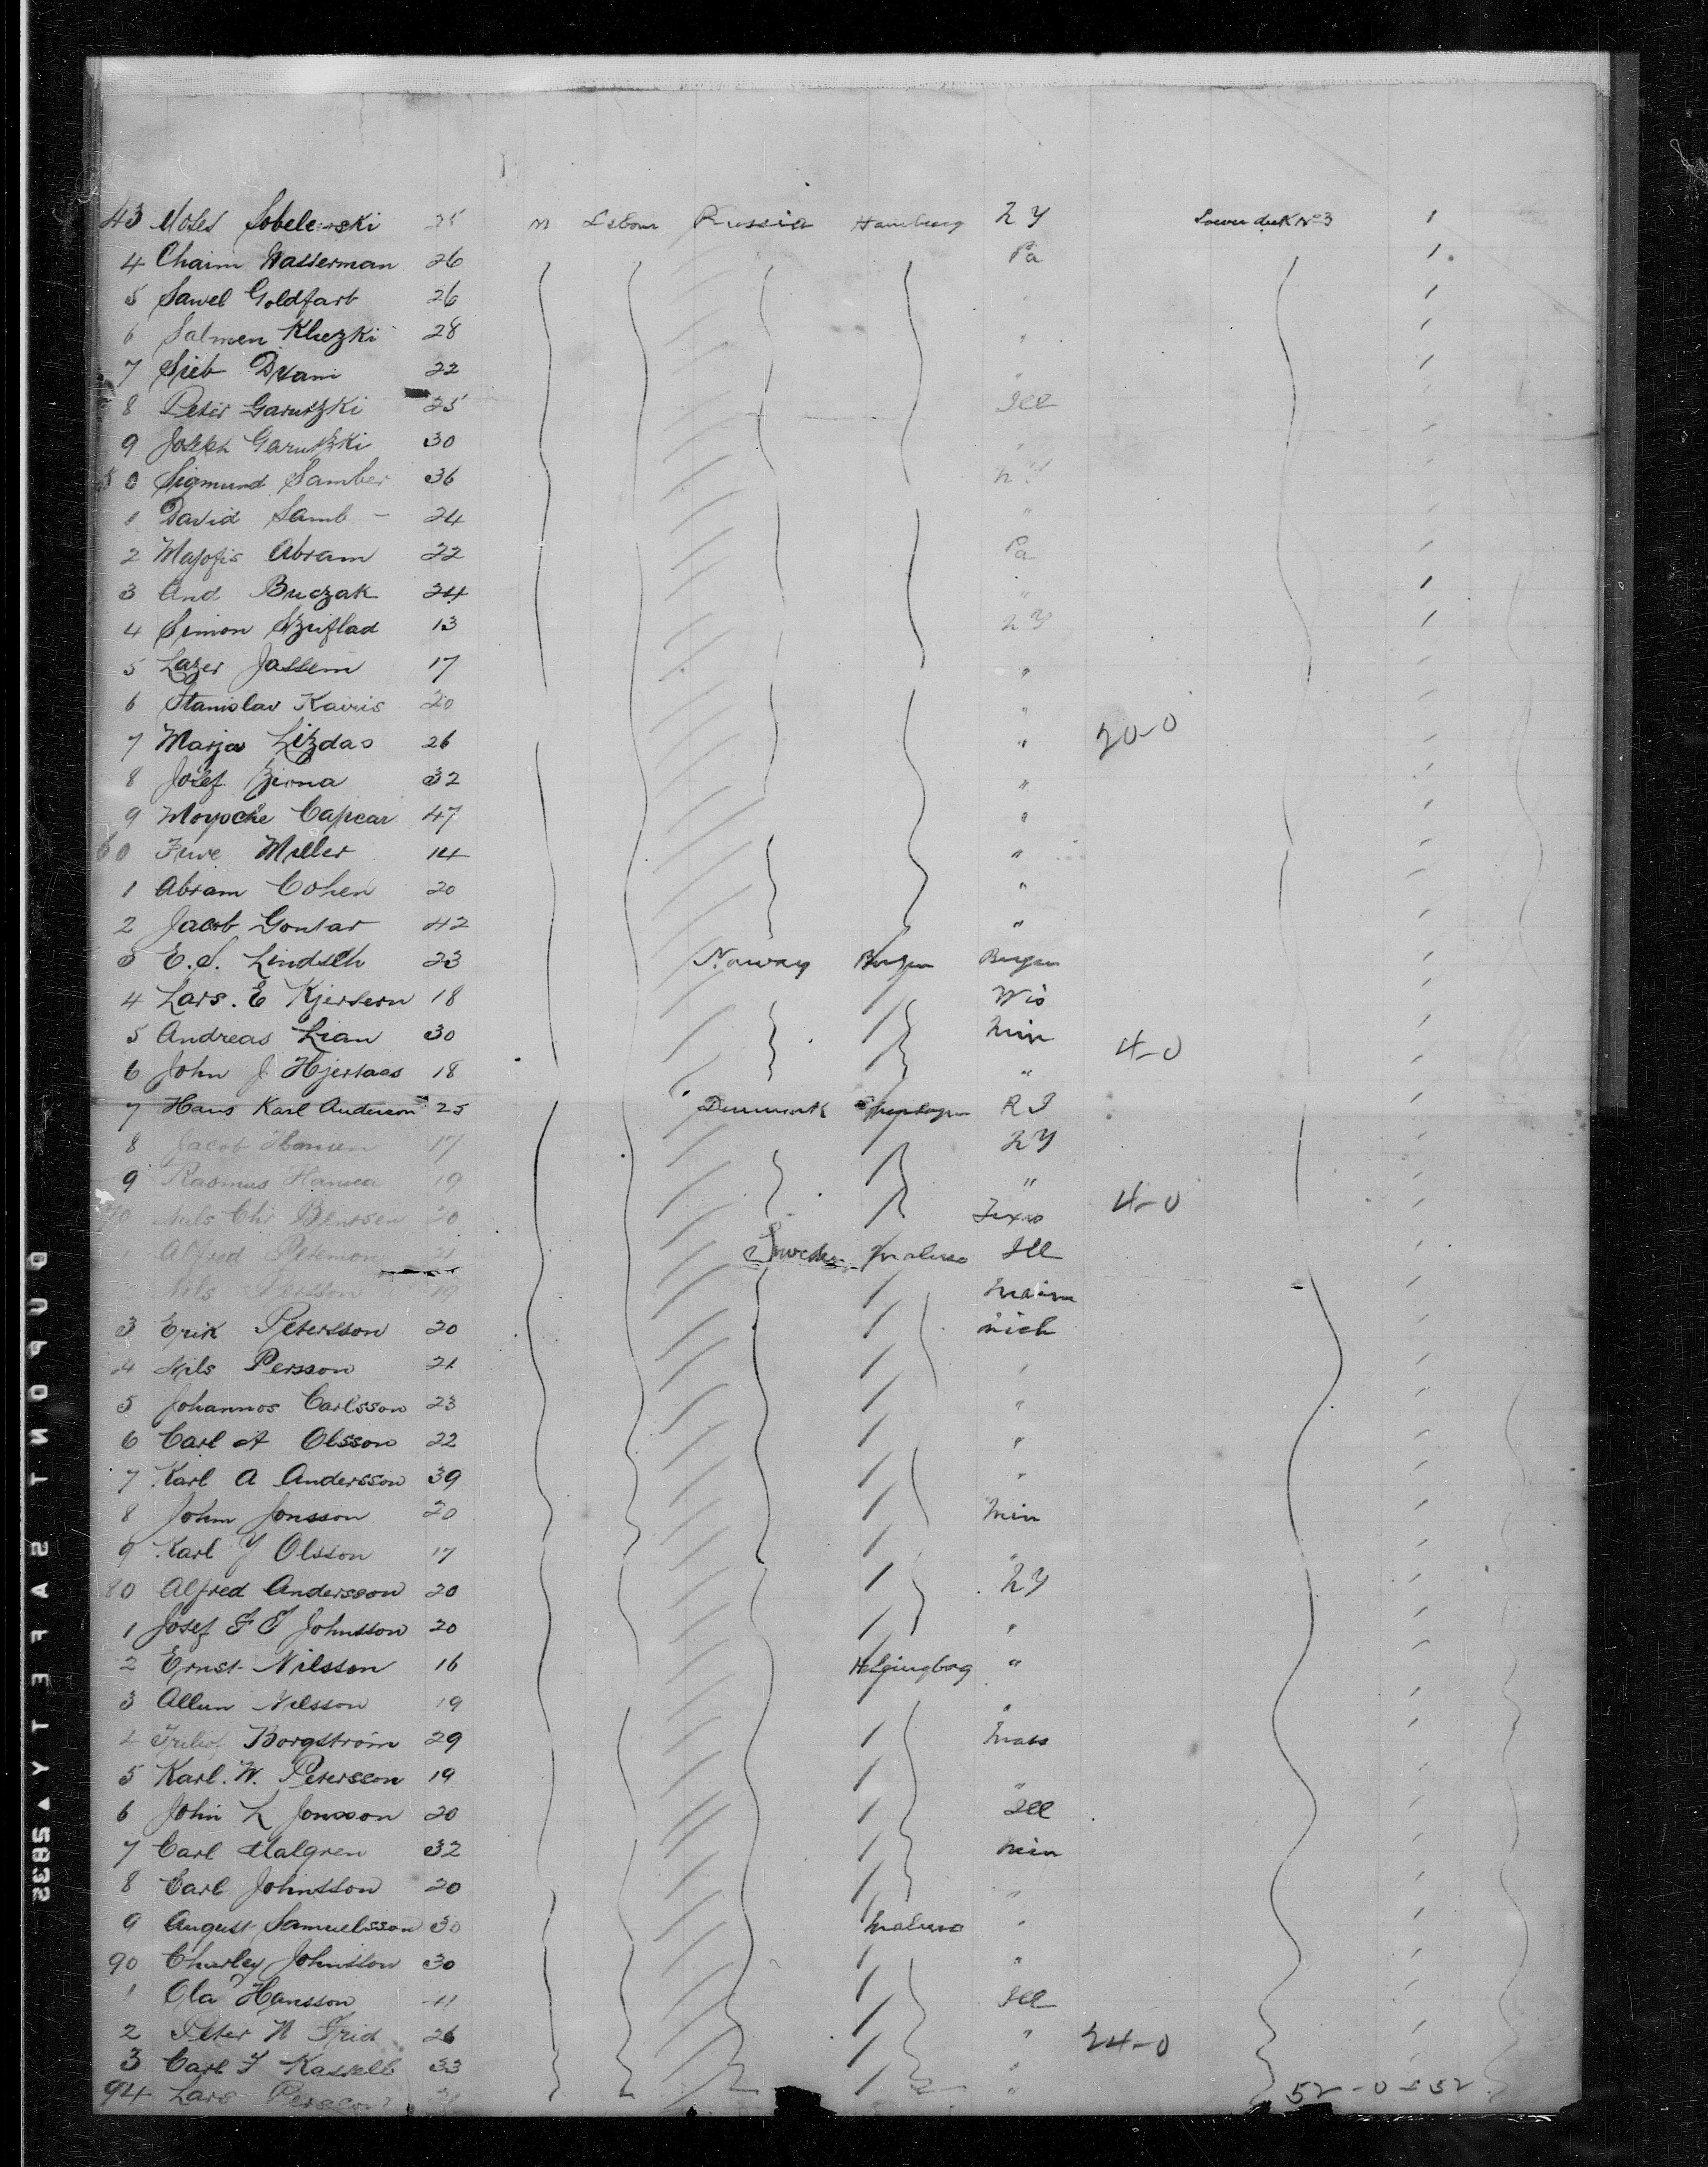 43 Moses Sobelewski 25 m Labour Russia Hamburg N Y Lower deck No 3 1
4 Chaim Wasserman 26 Pa 1
5 Sawel Goldfarb 26 1
6 Salmen Kluzki 28 "
7 Sieb Dvam 22 "
8 Peter Garutzki 25 Ill
9 Joseph Garutzki 30 "
50 Sigmund Samber 36 N Y
1 David Samb - 24 "
2 Majofis Abram 22 Pa
3 And Buczak 24 "
4 Simon Szuflad 13 N Y
5 Lazer Jassem 17 "
6 Stanislav Kairis 20 "
7 Marja Lizdas 26 " 20-0
8 Josef Zirna 32 "
9 Moyoche Capcar 47 "
60 Fuve Miller 14 "
1 Abram Cohen 20 "
2 Jacob Gontar 42 "
3 E. S. Lindseth 23 Norway Bergen Bergen
4 Lars. E Kjersern 18 Wis
5 Andreas Lian 30 Min 4-0
6 John J. Hjertaas 18 "
7 Hans Karl Anderson 25 Denmark Copenhagen R I
8 Jacob 17 N Y
9 Rasmus Hansen 19 "
70 Nils Chr Bentsen 20 Texas 4-0
1 Alfred Peterson 21 Sweden Malmo Ill
Nils Persson 19
3 Erik Petersson 20 Mich
4 Nils Persson 21 "
5 Johannos Carlsson 23 "
6 Carl A Olsson 22 "
7 Karl A Andersson 39 "
8 John Jonsson 20 Min
9 Karl J Olsson 17 "
80 Alfred Andersson 20 N Y
1 Josef F I Johnsson 20 "
2 Ernst Nilsson 16 Helsingborg "
3 Allun Nilsson 19 "
4 Borgström 29 Mass
5 Karl. W. Petersson 19 "
6 John L Jonsson 20 Ill
7 Carl Malgren 32 Min
8 Carl Johnsson 20 "
9 August Samuelsson 30 Malmo "
90 Charley Johnsson 30 "
1 Ola Hansson 41 Ill
2 Peter N Frid 26 " 24-0
3 Carl F Kassell 33 "
94 Lars Persson " 52-0=52